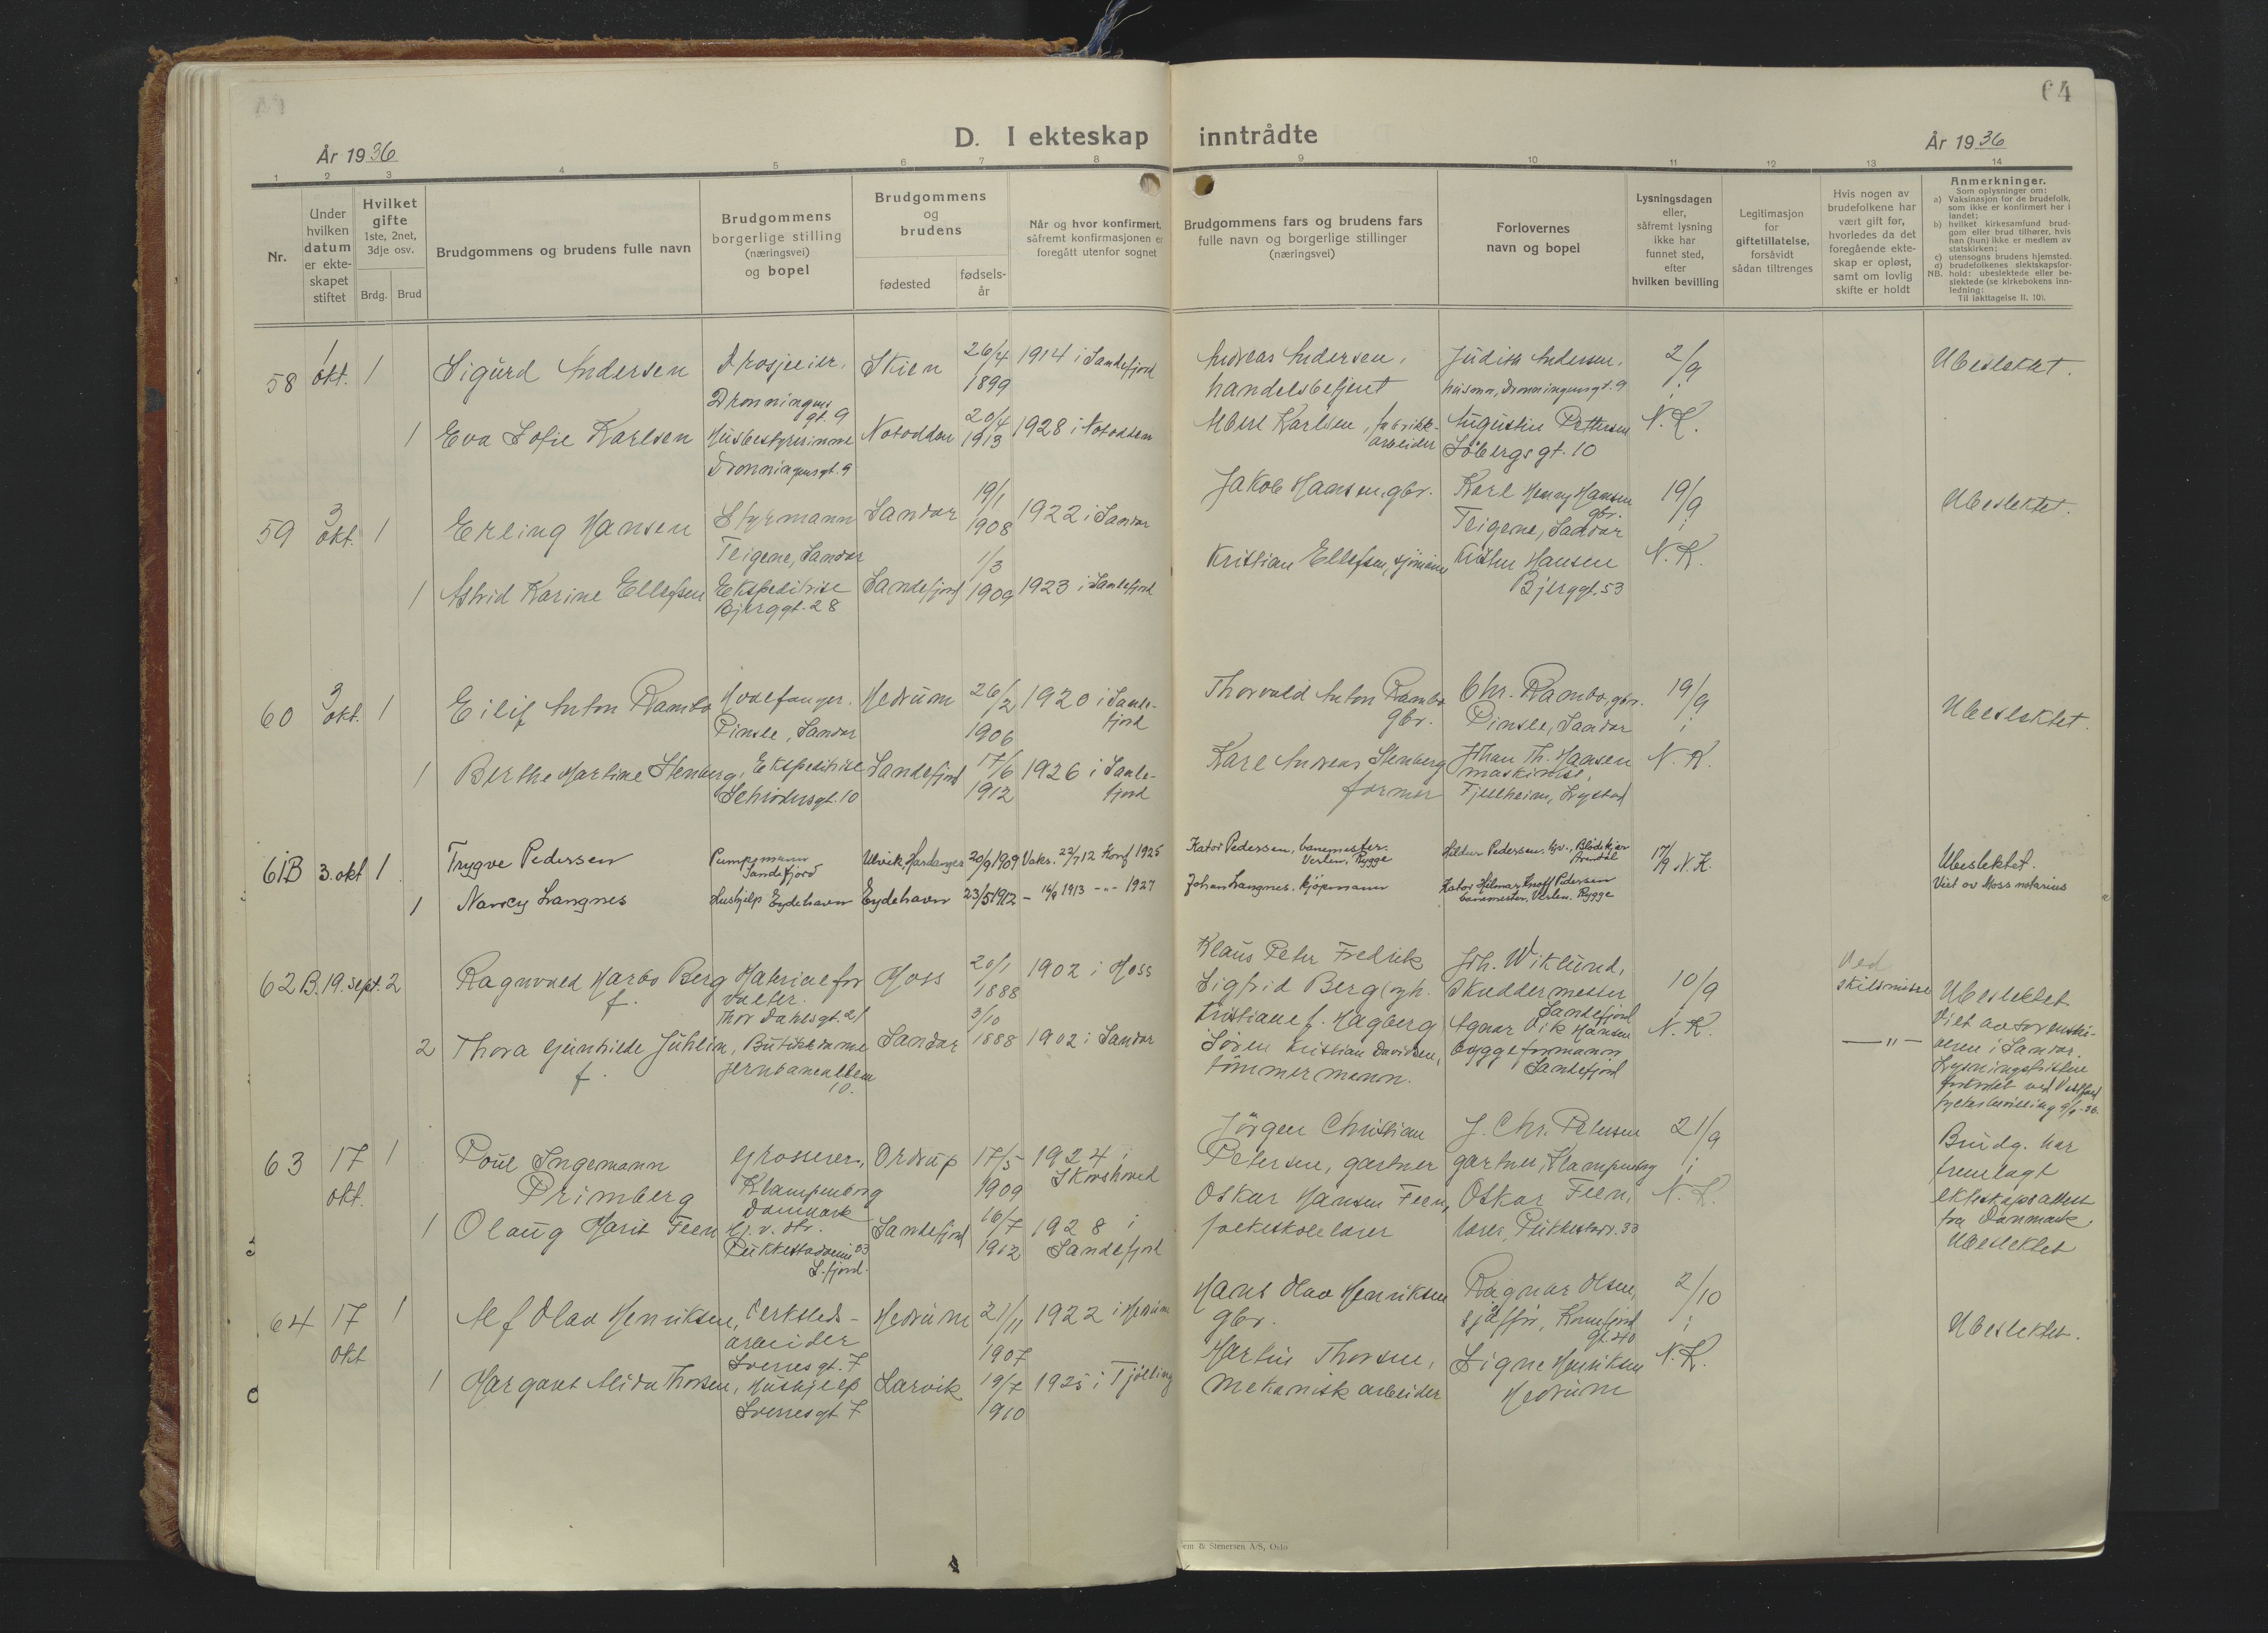 64
D. I ekteskap inntrådte
År 1936
År 1936
1 2 3 4 5 6 7 8 9 10 11 12 13 14
Nr.
Under hvilken datum er ekteskapet stiftet
Hvilket gifte
1ste, 2net, 3dje osv.
Brdg. Brud
Brudgommens og brudens fulle navn
Brudgommens borgerlige stilling (næringsvei) og bopel
Brudgommens og brudens
fødested
fødselsår
Når og hvor konfirmert, såfremt konfirmasjonen er foregått utenfor sognet
Brudgommens fars og brudens fars fulle navn og borgerlige stillinger (næringsvei)
Forlovernes navn og bopel
Lysningsdagen eller, såfremt lysning ikke har funnet sted, efter hvilken bevilling
Legitimasjon for giftetillatelse, forsåvidt sådan tiltrenges
Hvis nogen av brudefolkene har vært gift før, hvorledes da det foregående ekteskap er opløst, samt om lovlig skifte er holdt
Anmerkninger.
Som oplysninger om:
a) Vaksinasjon for de brudefolk, som ikke er konfirmert her i landet;
b) hvilket kirkesamfund brudgom eller brud tilhører, hvis han (hun) ikke er medlem av statskirken;
c) utensogns brudens hjemsted.
d) brudefolkenes slektskapsforhold: ubeslektede eller beslektede (se kirkebokens innledning:
NB.
Til iakttagelse II, 10).
58 1 okt. 1 Sigurd Andersen Drosjeeier, Dronningens gt. 9 Skien 26/4 1899 1914 i Sandefjord Andreas Andersen, handelsbetjent Judith Andersen, husmor, Dronningensgt. 9 2/9 i N.K. Ubeslektet.
1 Eva Sofie Karlsen Husbestyrerinne Dronningensgt. 9 Notodden 20/4 1913 1928 i Notodden Karlsen, fabrikk-arbeider Augustin Pettersen Söbergs gt. 10
59 3 okt. 1 Erling Hansen Styrmann Teigene, Sandar Sandar 19/1 1908 1922 i Sandar Jakob Hansen, gbr. Karl Henry Hansen gbr. Teigene, Sandar 19/9 i N.K. Ubeslektet.
1 Astrid Karine Ellefsen Ekspeditrise Bjerggt. 28 Sandefjord 1/3 1909 1923 i Sandefjord Kristian Ellefsen, sjömann Hansen Bjerggt. 53
60 3 okt. 1 Eilif Anton Rambo Hvalfanger. Pinsle, Sandar Hedrum 26/2 1906 1920 i Sandefjord Thorvald Anton Rambo gbr. Chr. Rambo, gbr. Pinsle, Sandar 19/9 i N.K. Ubeslektet.
1 Berthe Martine Stenberg, Ekspeditrise Schiödtsgt. 10 Sandefjord 17/6 1912 1926 i Sandefjord Karl Andreas Stenberg former Johan Th. Hansen maskinist, Fjellheim, Nystad
61B 3. okt 1 Trygve Pedersen Pumpemann Sandefjord Ulvik Hardanger 20/9 1909 Vaks. 22/7 12 Konf 1925 Kator Pedersen, banemester. Verlen, Rygge Hildur Pedersen, Arendal 17/9 N.K. Ubeslektet. Viet av Moss notarius
1 Nancy Langnes Hushjelp Eydehavn Eydehavn 23/5 1912 – 16/9 1913 –"– 1927 Johan Langnes. kjöpmann Kator Hilmar Knoff Pedersen banemester, Verlen. Rygge
62B. 19. sept. 2 Ragnvald Marbo Berg f. Materialforvalter. Thor Dahlsgt. 21 Moss 20/1 1888 1902 i Moss Klaus Peter Fredrik Sigfrid Berg og h. Kristiane f. Hagberg Joh. Wiklund, Skreddermester Sandefjord 10/9 N.K. Ved skilsmisse Ubeslektet. Viet av sorenskriveren i Sandar.
2 Thora Gunhilde Juhlin, f. Butikkdame Jernbanealleen 10. Sandar 3/10 1888 1902 i Sandar Sören Kristian Davidsen, tömmermann. Agnar Vik Hansen byggeformann Sandefjord –"–
63 17 okt. 1 Poul Ingemann Primberg Grosserer, Klampenborg Danmark Ordrup 17/5 1909 1924 i Skovshoved Jörgen Christian Petersen, gartner J. Chr. Petersen gartner, Klampenborg 21/9 i N.K. Brudg. har fremlagt ekteskapsattest fra Danmark. Ubeslektet
1 Olaug Marit Feen Hj. v. str. Pukkestadveien 33 S.fjord. Sandefjord 16/7 1912 1928 i Sandefjord Oskar Hansen Feen, folkeskolelærer Oskar Feen, lærer, Pukkestadv. 33
64 17 okt 1 Alf Olav Henriksen, Verksteds-arbeider Sverresgt. 7 Hedrum 21/11 1907 1922 i Hedrum Hans Olav Henriksen gbr. Ragnar Olsen, sjåffør, gt. 40 2/10 i N.K. Ubeslektet.
1 Margant Alida Thorsen, Hushjelp Sverresgt. 7 Larvik 19/7 1910 1925 i Tjölling Martin Thorsen, Mekanisk arbeider Signe Henriksen Hedrum
em & Stenersen A/S, Oslo